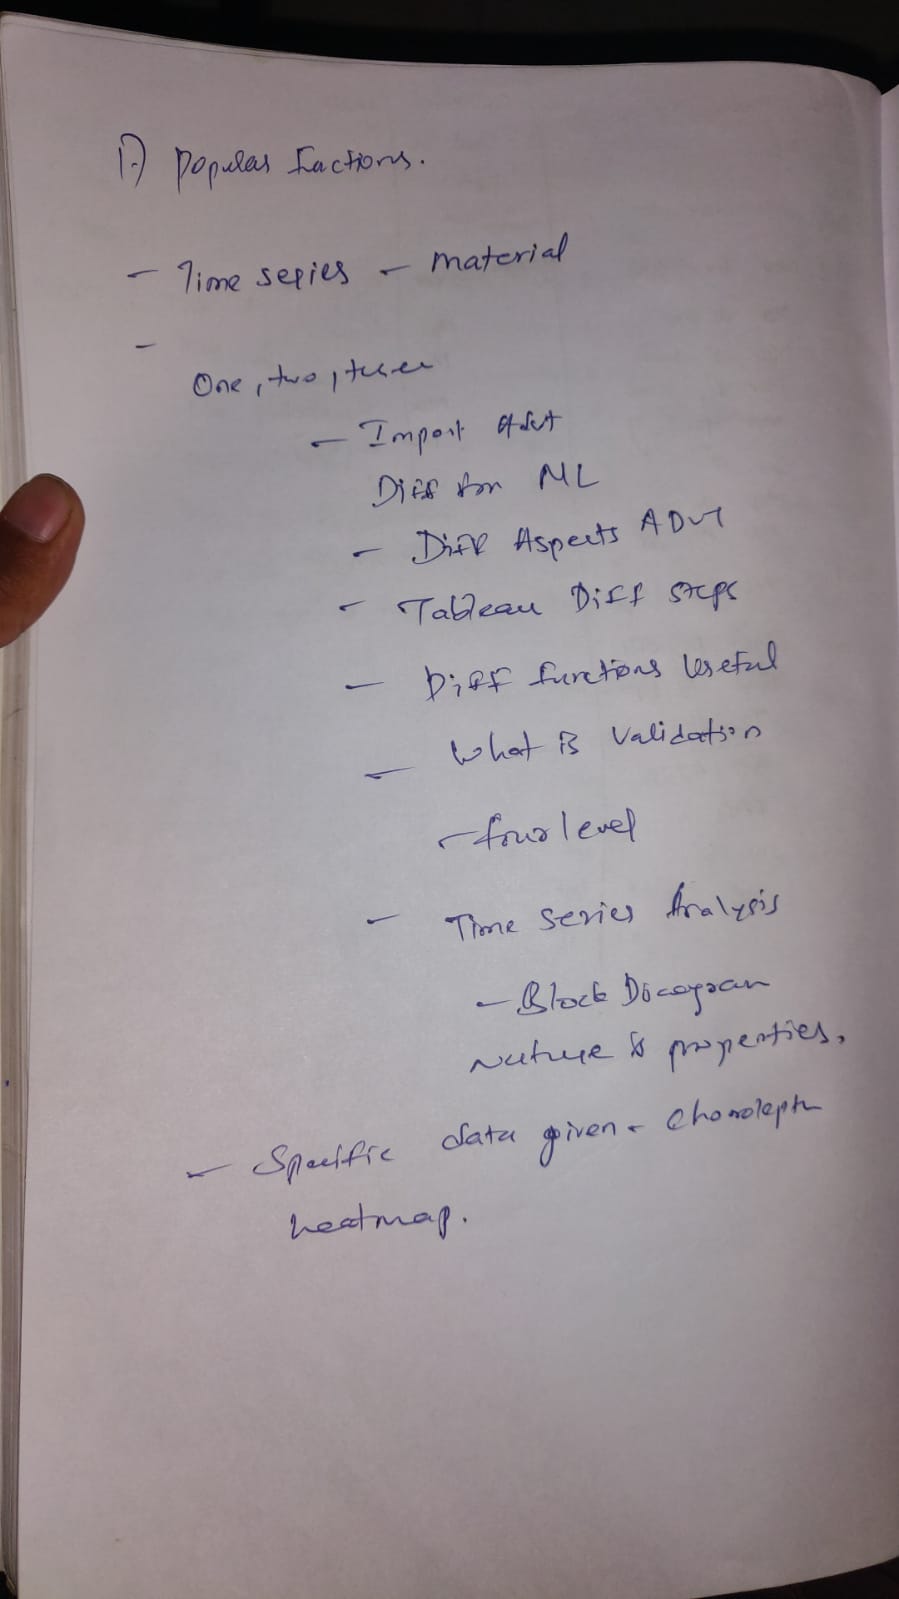 1.) Popular Factions.
- Time series - material
-
One, two, three
- Import
Diff for ML
- Diff Aspects ADVT
- Tableau Diff steps
- Diff functions Useful
- What is Validation
- four level
- Time Series Analysis
- Block Diagram
Nature & properties.
- Specific data given - Choropleth
heatmap.